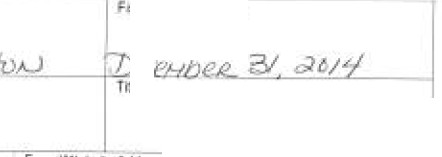 Fa
ON D EMBER 31, 2014
Tit